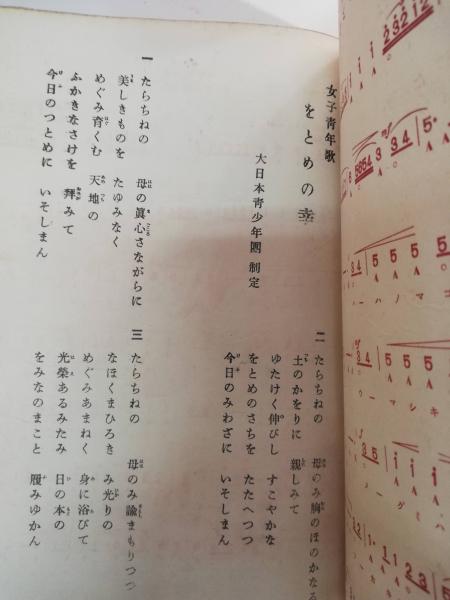 女子青年歌
をとめの幸
大日本青少年團 制定
一
たらちねの 母の眞心さながらに
美しきものを たゆみなく
めぐみ育くむ 天地の
ふかきなさけを 拜みて
今日のつとめに いそしまん
二
たらちねの 母のみ胸のほのかなる
土のかをりに 親しみて
ゆたけく伸びし すこやかな
をとめのさちを たたへつつ
今日のみわざに いそしまん
三
たらちねの 母のみ諭まもりつつ
なほくまひろき み光りの
めぐみあまねく 身に浴びて
光榮あるみたみ 日の本の
をみなのまこと 履みゆかん
ーハノハマコ
ウーマシキ
ーメーグミハ